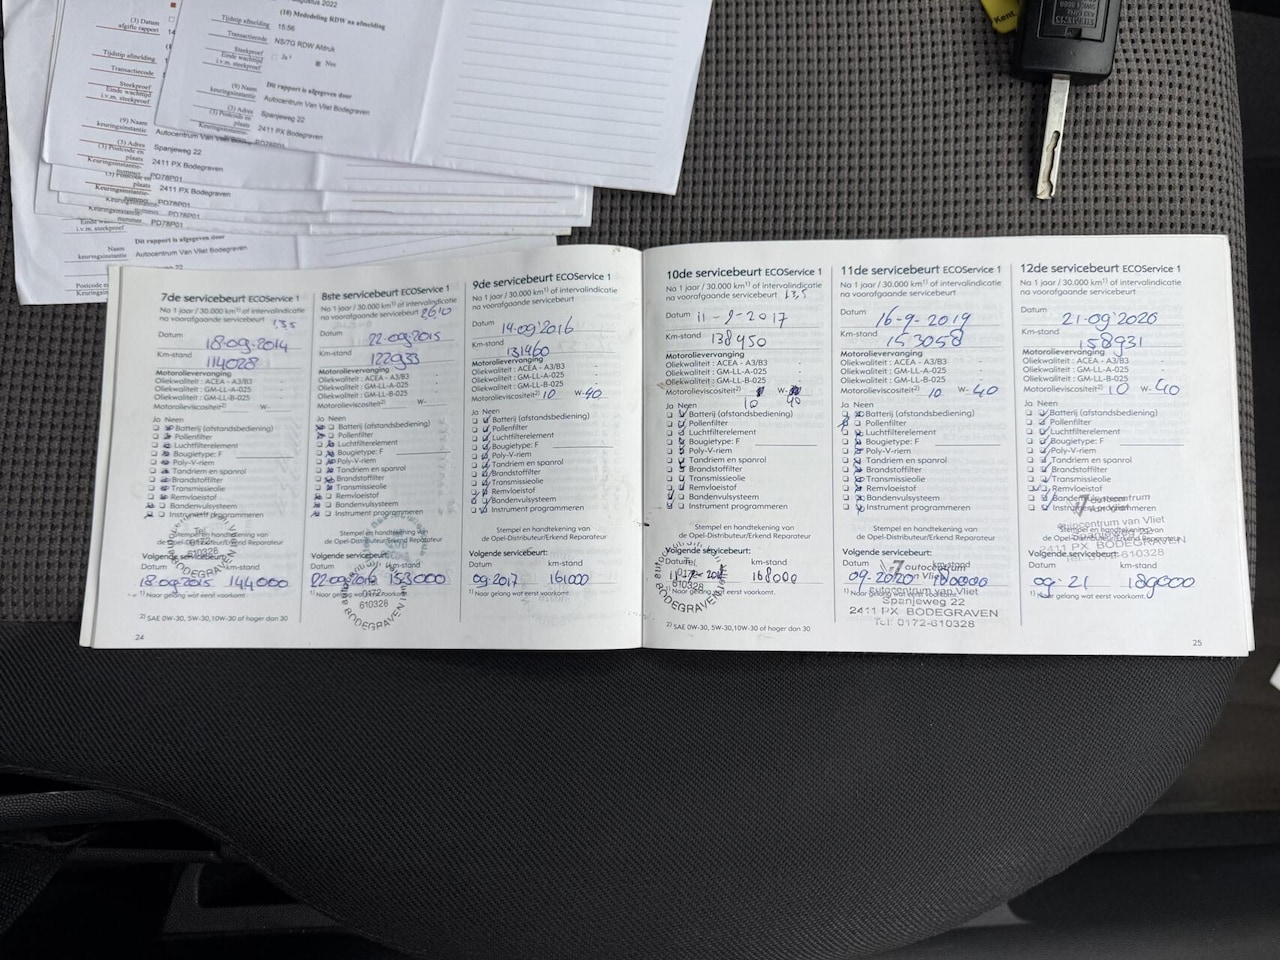 (10) Mededeling RDW na afmelding
Tijdstip afmelding 15:56
Transactiecode NS/7G RDW Afdruk
Steekproef Ja Nee
Einde wachttijd
i.v.m. steekproef
Dit rapport is afgegeven door
(9) Naam
keuringsinstantie Autocentrum Van Vliet Bodegraven
(3) Adres Spanjeweg 22
(3) Postcode en
plaats 2411 PX Bodegraven
(3) Datum
afgifte rapport
Tijdstip afmelding
Transactiecode
Steekproef
Einde wachttijd
i.v.m. steekproef
(9) Naam
keuringsinstantie
(3) Adres Spanjeweg 22
(3) Postcode en
plaats 2411 PX Bodegraven
PD78P01
2411 PX Bodegraven
PD78P01
PD78P01
Dit rapport is afgegeven door
Naam
keuringsinstantie Autocentrum Van Vliet Bodegraven
Kent.
7de servicebeurt ECOService 1
Na 1 jaar / 30.000 km1) of intervalindicatie
na voorafgaande servicebeurt
Datum 18-09-2014
Km-stand 114028
Motorolievervanging
Oliekwaliteit : ACEA - A3/B3
Oliekwaliteit : GM-LL-A-025
Oliekwaliteit : GM-LL-B-025
Motorolieviscositeit2) W-
Ja Neen
Batterij (afstandsbediening)
Pollenfilter
Luchtfilterelement
Bougietype: F
Poly-V-riem
Tandriem en spanrol
Brandstoffilter
Transmissieolie
Remvloeistof
Bandenvulsysteem
Instrument programmeren
Stempel en handtekening van
de Opel-Distributeur/Erkend Reparateur
Tel.
0172-
610328
BODEGRAVEN
Volgende servicebeurt:
Datum km-stand
18-09-2015 144000
1) Naar gelang wat eerst voorkomt.
2) SAE 0W-30, 5W-30,10W-30 of hoger dan 30
24
8ste servicebeurt ECOService 1
Na 1 jaar / 30.000 km1) of intervalindicatie
na voorafgaande servicebeurt
Datum 22-09-2015
Km-stand 122933
Motorolievervanging
Oliekwaliteit : ACEA - A3/B3
Oliekwaliteit : GM-LL-A-025
Oliekwaliteit : GM-LL-B-025
Motorolieviscositeit2) W-
Ja Neen
Batterij (afstandsbediening)
Pollenfilter
Luchtfilterelement
Bougietype: F
Poly-V-riem
Tandriem en spanrol
Brandstoffilter
Transmissieolie
Remvloeistof
Bandenvulsysteem
Instrument programmeren
Stempel en handtekening van
de Opel-Distributeur/Erkend Reparateur
Volgende servicebeurt:
Datum km-stand
22-09-2016 153000
0172-
610328
BODEGRAVEN
1) Naar gelang wat eerst voorkomt.
9de servicebeurt ECOService 1
Na 1 jaar / 30.000 km1) of intervalindicatie
na voorafgaande servicebeurt
Datum 14-09-2016
Km-stand 131460
Motorolievervanging
Oliekwaliteit : ACEA - A3/B3
Oliekwaliteit : GM-LL-A-025
Oliekwaliteit : GM-LL-B-025
Motorolieviscositeit2) 10 W-40
Ja Neen
Batterij (afstandsbediening)
Pollenfilter
Luchtfilterelement
Bougietype: F
Poly-V-riem
Tandriem en spanrol
Brandstoffilter
Transmissieolie
Remvloeistof
Bandenvulsysteem
Instrument programmeren
Stempel en handtekening van
de Opel-Distributeur/Erkend Reparateur
Volgende servicebeurt:
Datum km-stand
09-2017 161000
1) Naar gelang wat eerst voorkomt.
10de servicebeurt ECOService 1
Na 1 jaar / 30.000 km1) of intervalindicatie
na voorafgaande servicebeurt 13,5
Datum 11-9-2017
Km-stand 138950
Motorolievervanging
Oliekwaliteit : ACEA - A3/B3
Oliekwaliteit : GM-LL-A-025
Oliekwaliteit : GM-LL-B-025
Motorolieviscositeit2) W-
10 40
Ja Neen
Batterij (afstandsbediening)
Pollenfilter
Luchtfilterelement
Bougietype: F
Poly-V-riem
Tandriem en spanrol
Brandstoffilter
Transmissieolie
Remvloeistof
Bandenvulsysteem
Instrument programmeren
Stempel en handtekening van
de Opel-Distributeur/Erkend Reparateur
Volgende servicebeurt:
Datum km-stand
168000
610328
BODEGRAVEN
1) Naar gelang wat eerst voorkomt.
2) SAE 0W-30, 5W-30,10W-30 of hoger dan 30
11de servicebeurt ECOService 1
Na 1 jaar / 30.000 km1) of intervalindicatie
na voorafgaande servicebeurt
Datum 16-9-2019
Km-stand 153058
Motorolievervanging
Oliekwaliteit : ACEA - A3/B3
Oliekwaliteit : GM-LL-A-025
Oliekwaliteit : GM-LL-B-025
Motorolieviscositeit2) 10 W-40
Ja Neen
Batterij (afstandsbediening)
Pollenfilter
Luchtfilterelement
Bougietype: F
Poly-V-riem
Tandriem en spanrol
Brandstoffilter
Transmissieolie
Remvloeistof
Bandenvulsysteem
Instrument programmeren
Stempel en handtekening van
de Opel-Distributeur/Erkend Reparateur
Volgende servicebeurt:
Datum km-stand
09-2020 180000
autocentrum
van Vliet
Autocentrum van Vliet
Spanjeweg 22
2411 PX BODEGRAVEN
Tel: 0172-610328
1) Naar gelang wat eerst voorkomt.
12de servicebeurt ECOService 1
Na 1 jaar / 30.000 km1) of intervalindicatie
na voorafgaande servicebeurt
Datum 21-09-2020
Km-stand 158931
Motorolievervanging
Oliekwaliteit : ACEA - A3/B3
Oliekwaliteit : GM-LL-A-025
Oliekwaliteit : GM-LL-B-025
Motorolieviscositeit2) 10 W-40
Ja Neen
Batterij (afstandsbediening)
Pollenfilter
Luchtfilterelement
Bougietype: F
Poly-V-riem
Tandriem en spanrol
Brandstoffilter
Transmissieolie
Remvloeistof
Bandenvulsysteem
Instrument programmeren
autocentrum
van Vliet
Autocentrum van Vliet
Stempel en handtekening van
de Opel-Distributeur/Erkend Reparateur
2411 PX BODEGRAVEN
Volgende servicebeurt:
Datum km-stand
09-21 189000
1) Naar gelang wat eerst voorkomt.
25